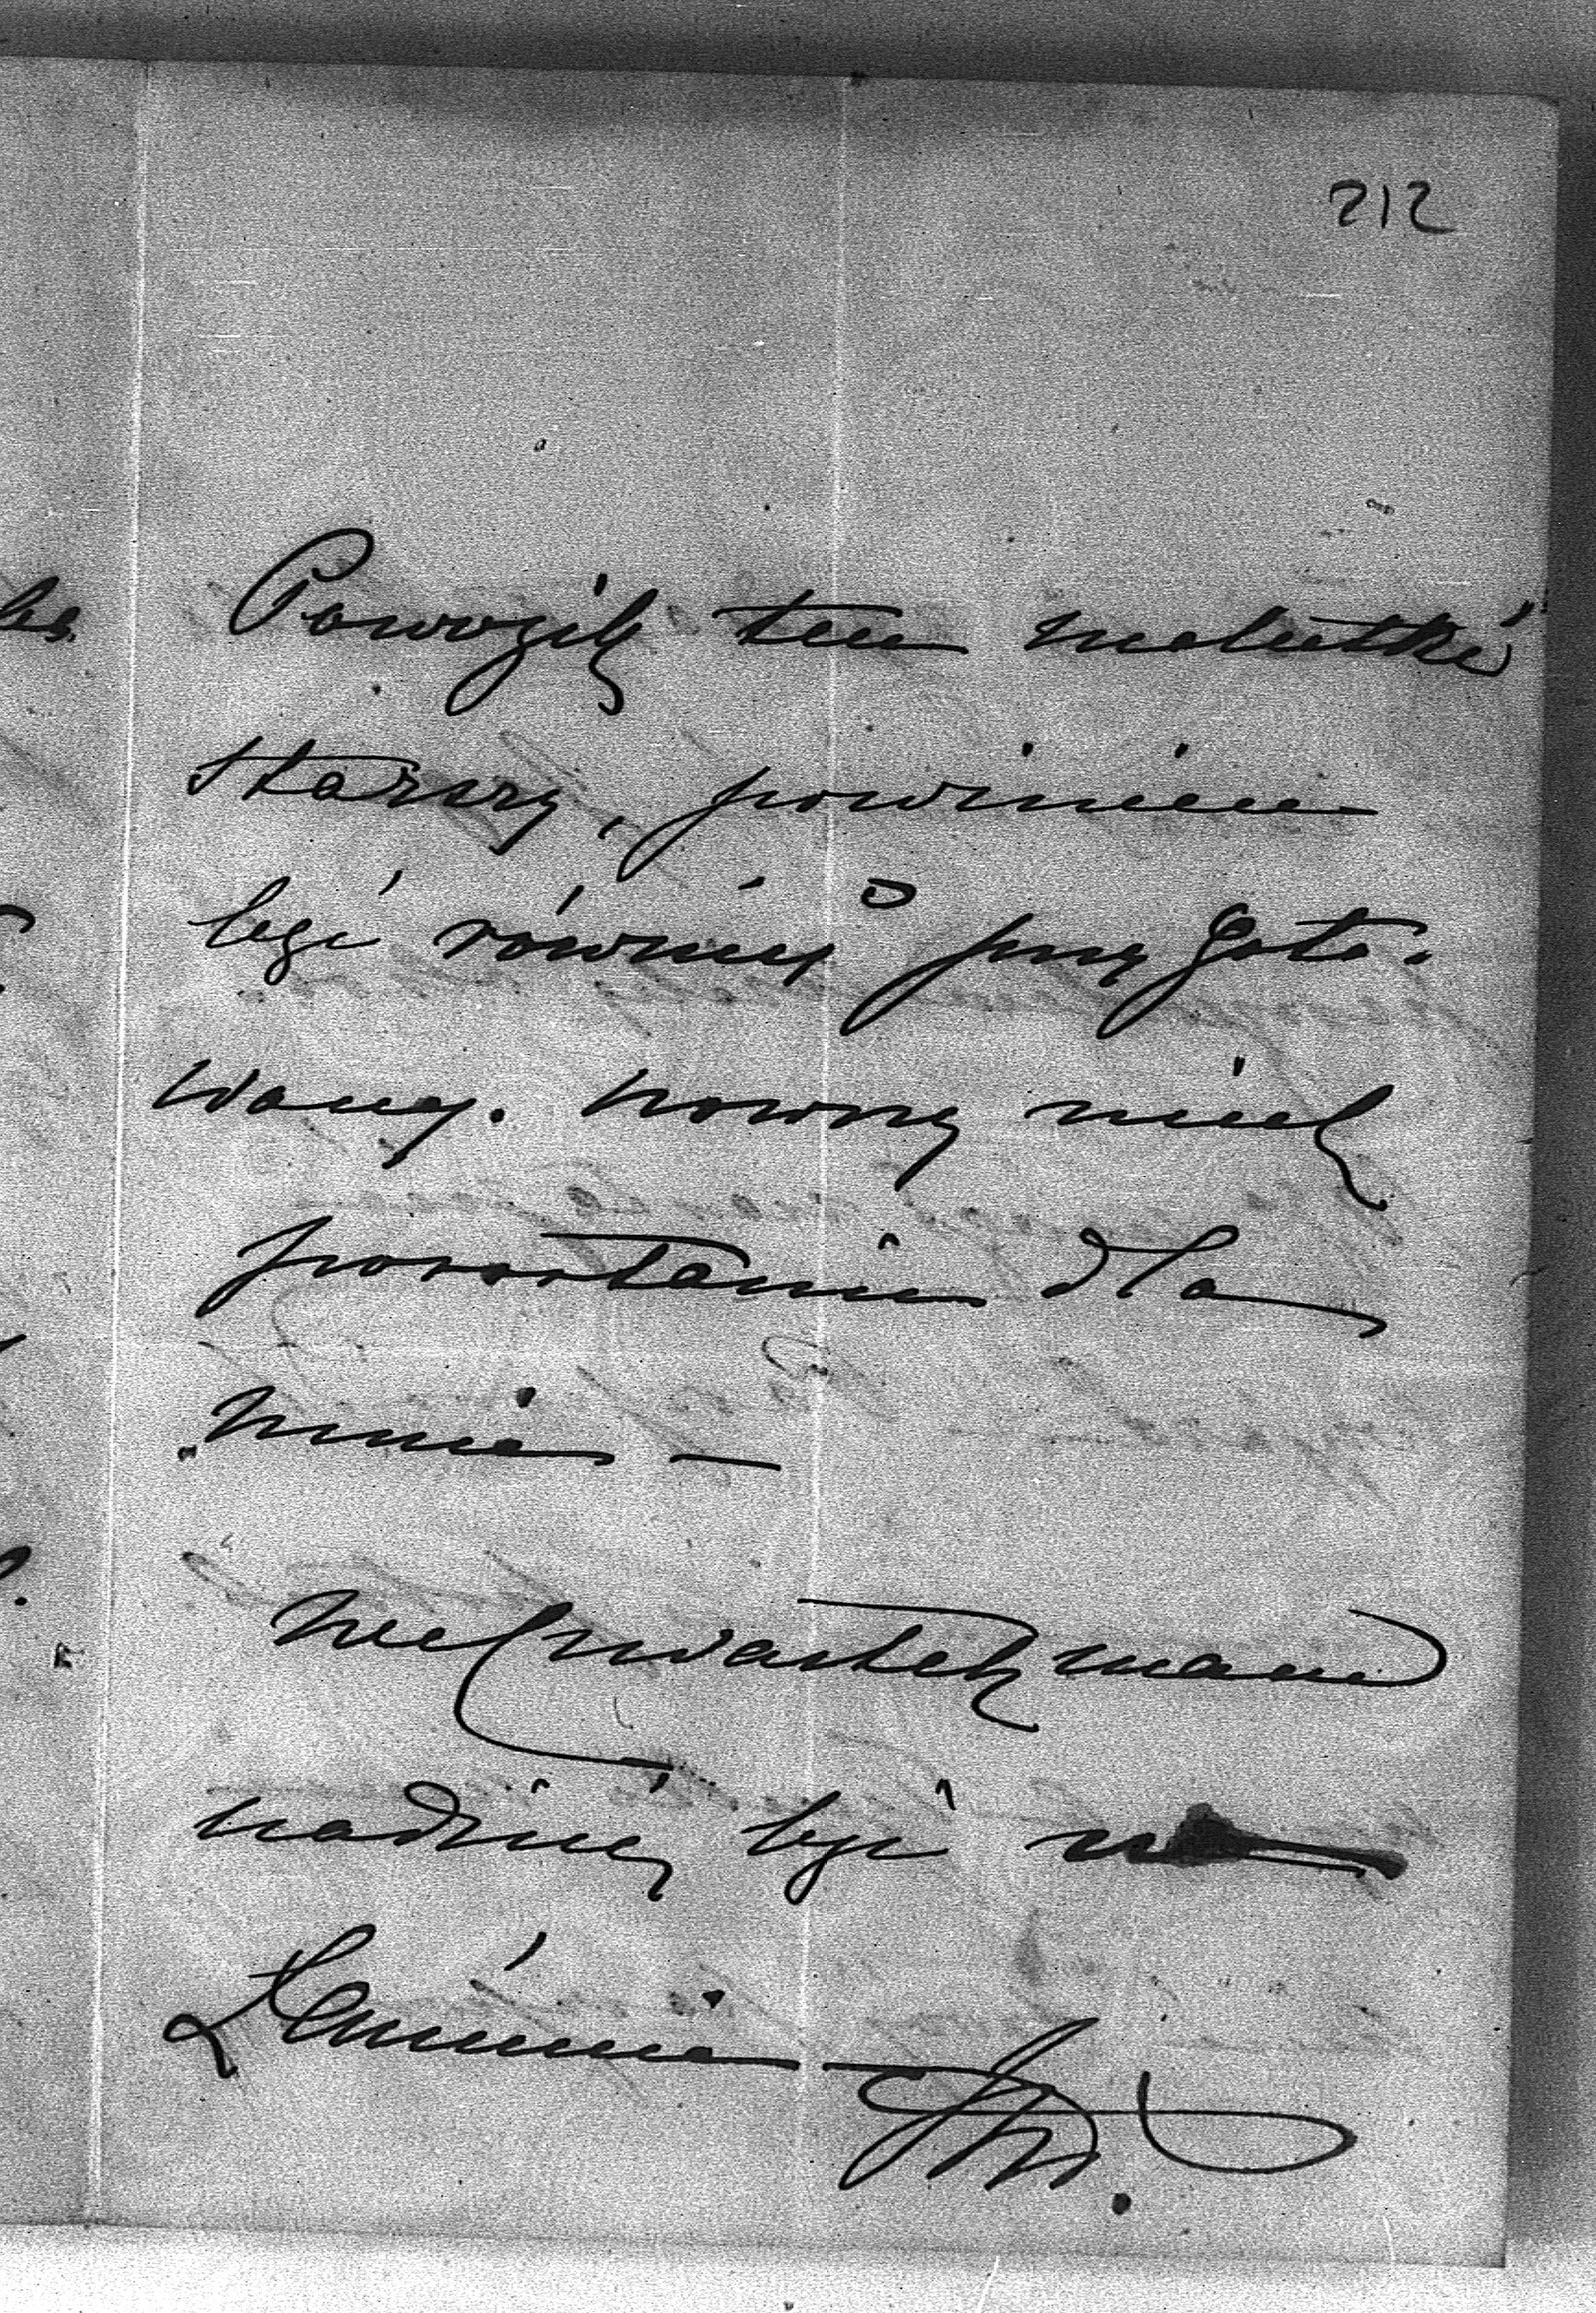 212
Powozik ten malutki
starszy, powinien
być równiéż przygoto-
wany. nowszy niech
pozostanie dla
mnie —
We Czwartek mam
nadzieię być w
Łaźninie